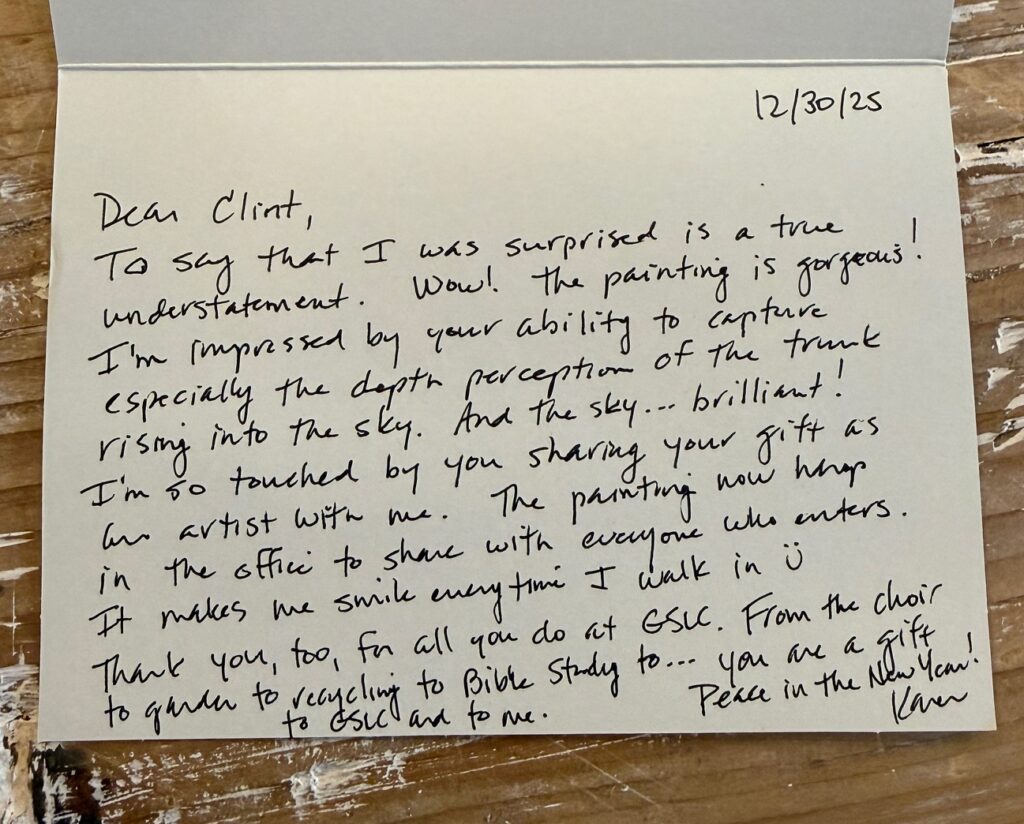 12/30/25
Dear Clint,
To say that I was surprised is a true
understatement. Wow! The painting is gorgeous!
I'm impressed by your ability to capture
especially the depth perception of the trunk
rising into the sky. And the sky... brilliant!
I'm so touched by you sharing your gift as
an artist with me. The painting now hangs
in the office to share with everyone who enters.
It makes me smile everytime I walk in ☺
Thank you, too, for all you do at GSLC. From the choir
to garden to recycling to Bible Study to... you are a gift
to GSLC and to me.
Peace in the New Year!
Karen